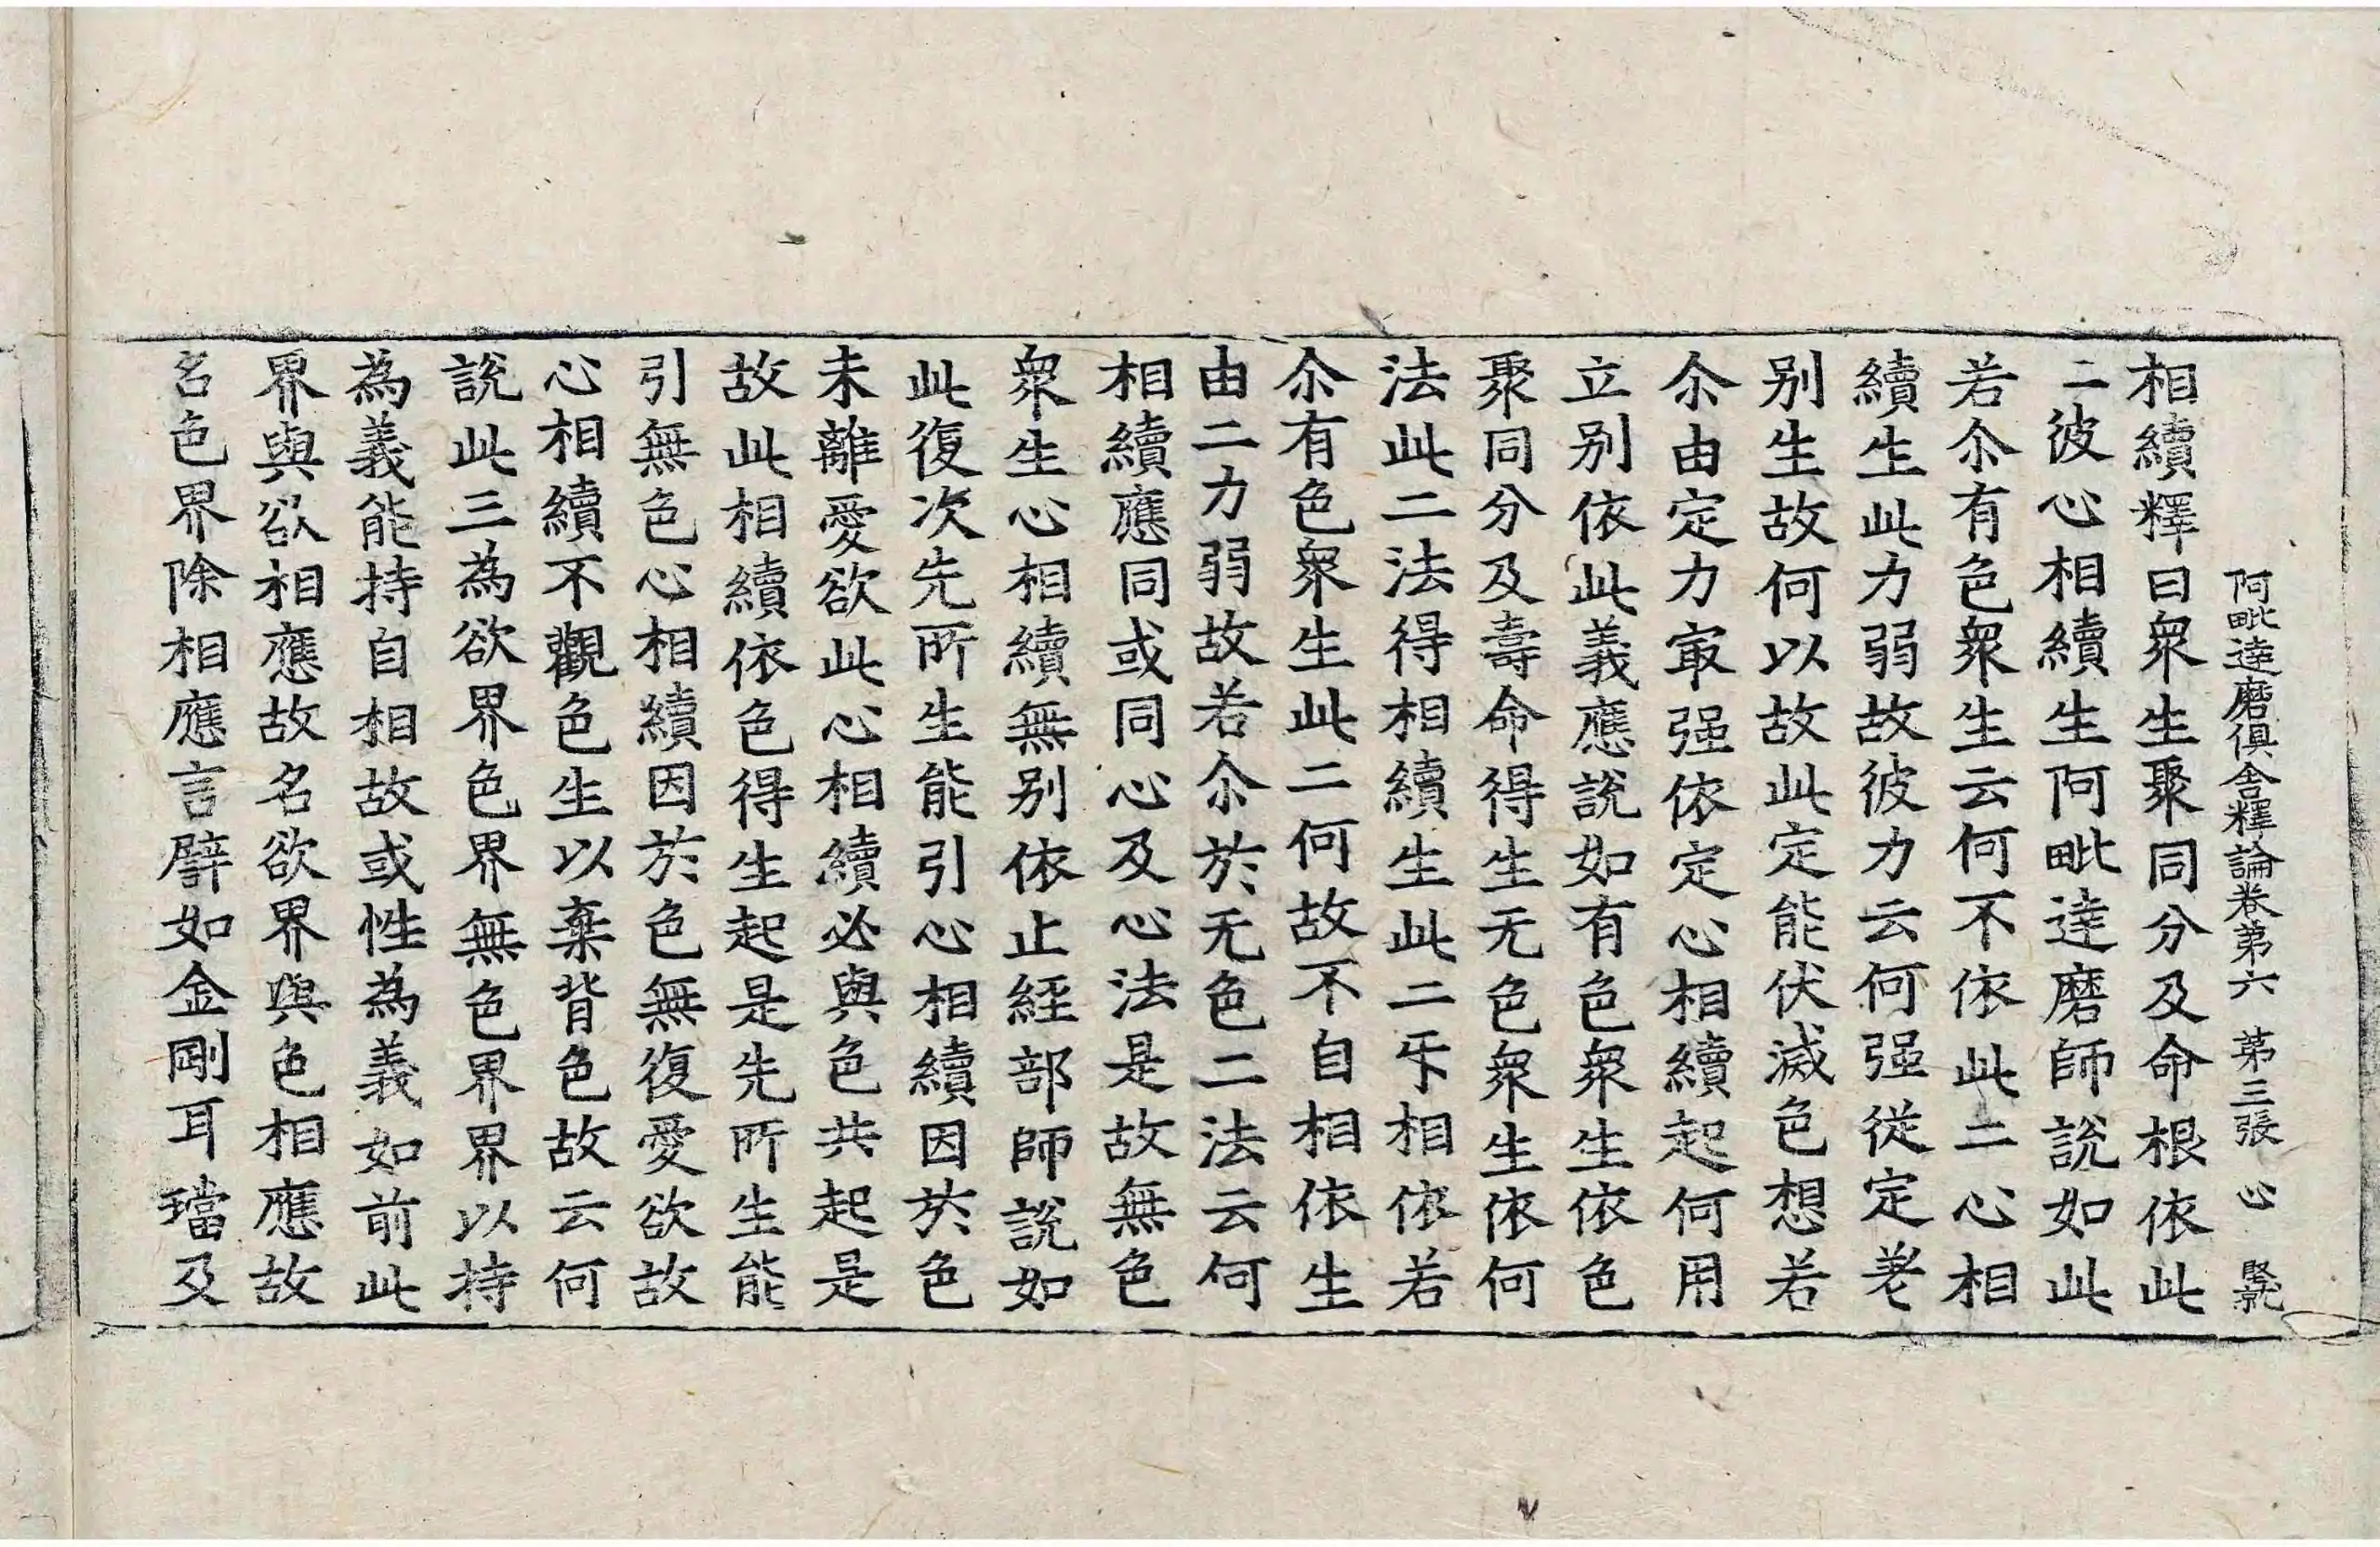 阿毗達磨俱舍釋論卷第六 第三張 心
相續釋曰衆生聚同分及命根依此
二彼心相續生阿毗達磨師說如此
若尒有色衆生云何不依此二心相
續生此力弱故彼力云何强從定差
别生故何以故此定能伏滅色想若
尒由定力㝡强依定心相續起何用
立别依此義應說如有色衆生依色
聚同分及壽命得生无色衆生依何
法此二法得相續生此二㸦相依若
尒有色衆生此二何故不自相依生
由二力弱故若尒於无色二法云何
相續應同或同心及心法是故無色
衆生心相續無别依止經部師說如
此復次先所生能引心相續因於色
未離愛欲此心相續必與色共起是
故此相續依色得生起是先所生能
引無色心相續因於色無復愛欲故
心相續不觀色生以棄背色故云何
說此三為欲界色界無色界界以持
為義能持自相故或性為義如前此
界與欲相應故名欲界與色相應故
名色界除相應言譬如金剛耳璫及